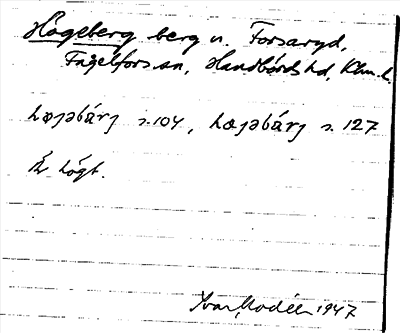 Högeberg berg n. Forsaryd,
Fågelfors sn, Handbörds hd, Klm. l.
høȷəbárȷ s. 104, høȷəbárȷ s. 127
Är högt.
Ivar Modéer 1947